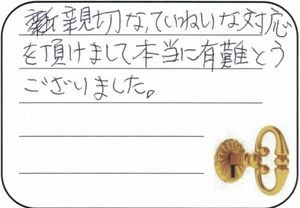 親切な、ていねいな対応
を頂けまして本当に有難とう
ございました。